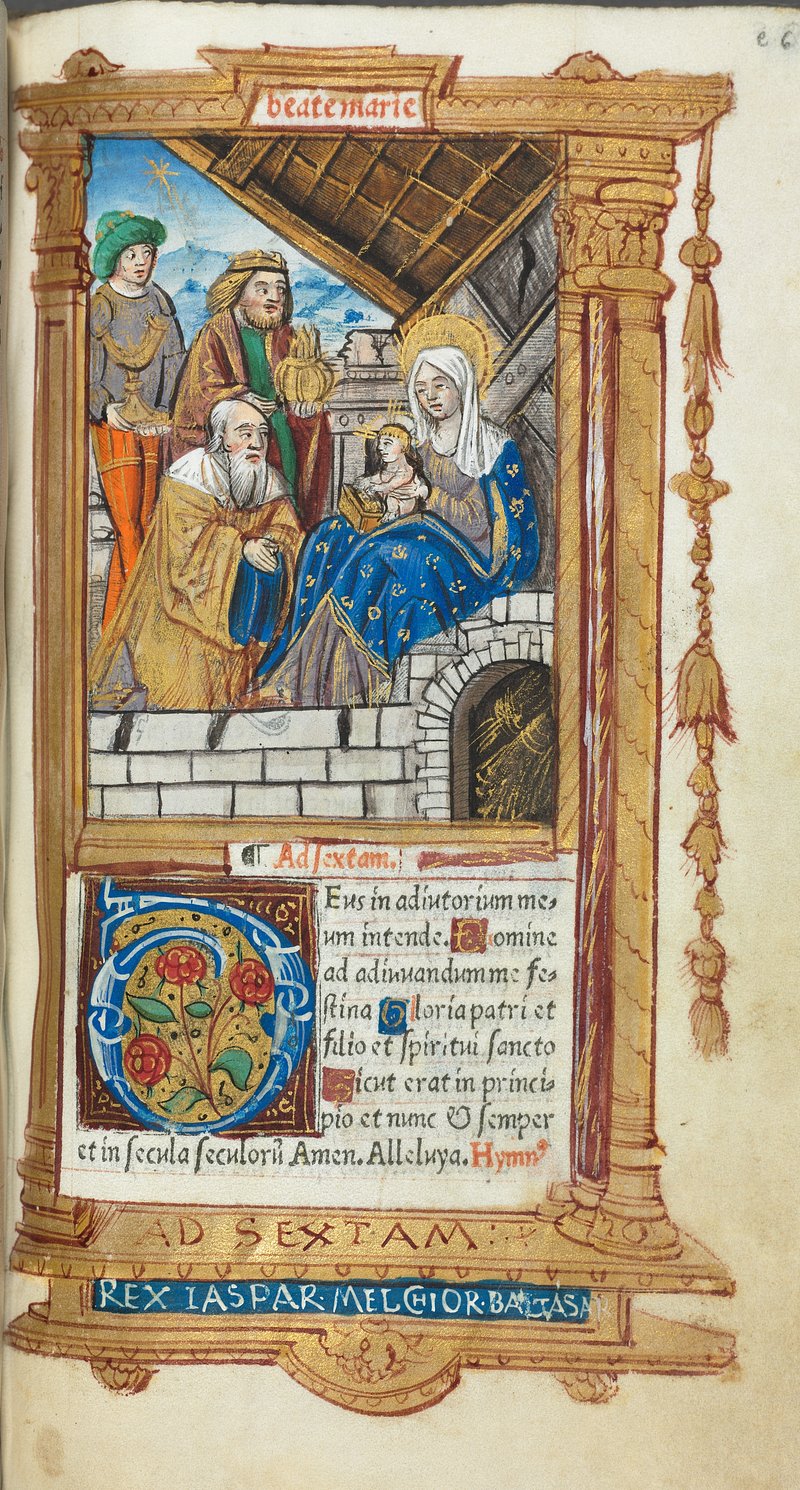 e 6
beate marie
¶ Ad sextam.
DEus in adiutorium me-
um intende. Domine
ad adiuuandum me fe-
stina Gloria patri et
filio et spiritui sancto
Sicut erat in princi-
pio et nunc & semper
et in secula seculorū Amen. Alleluya. Hymnꝰ
AD SEXTAM
REX IASPAR·MELCHIOR·BALTASAR